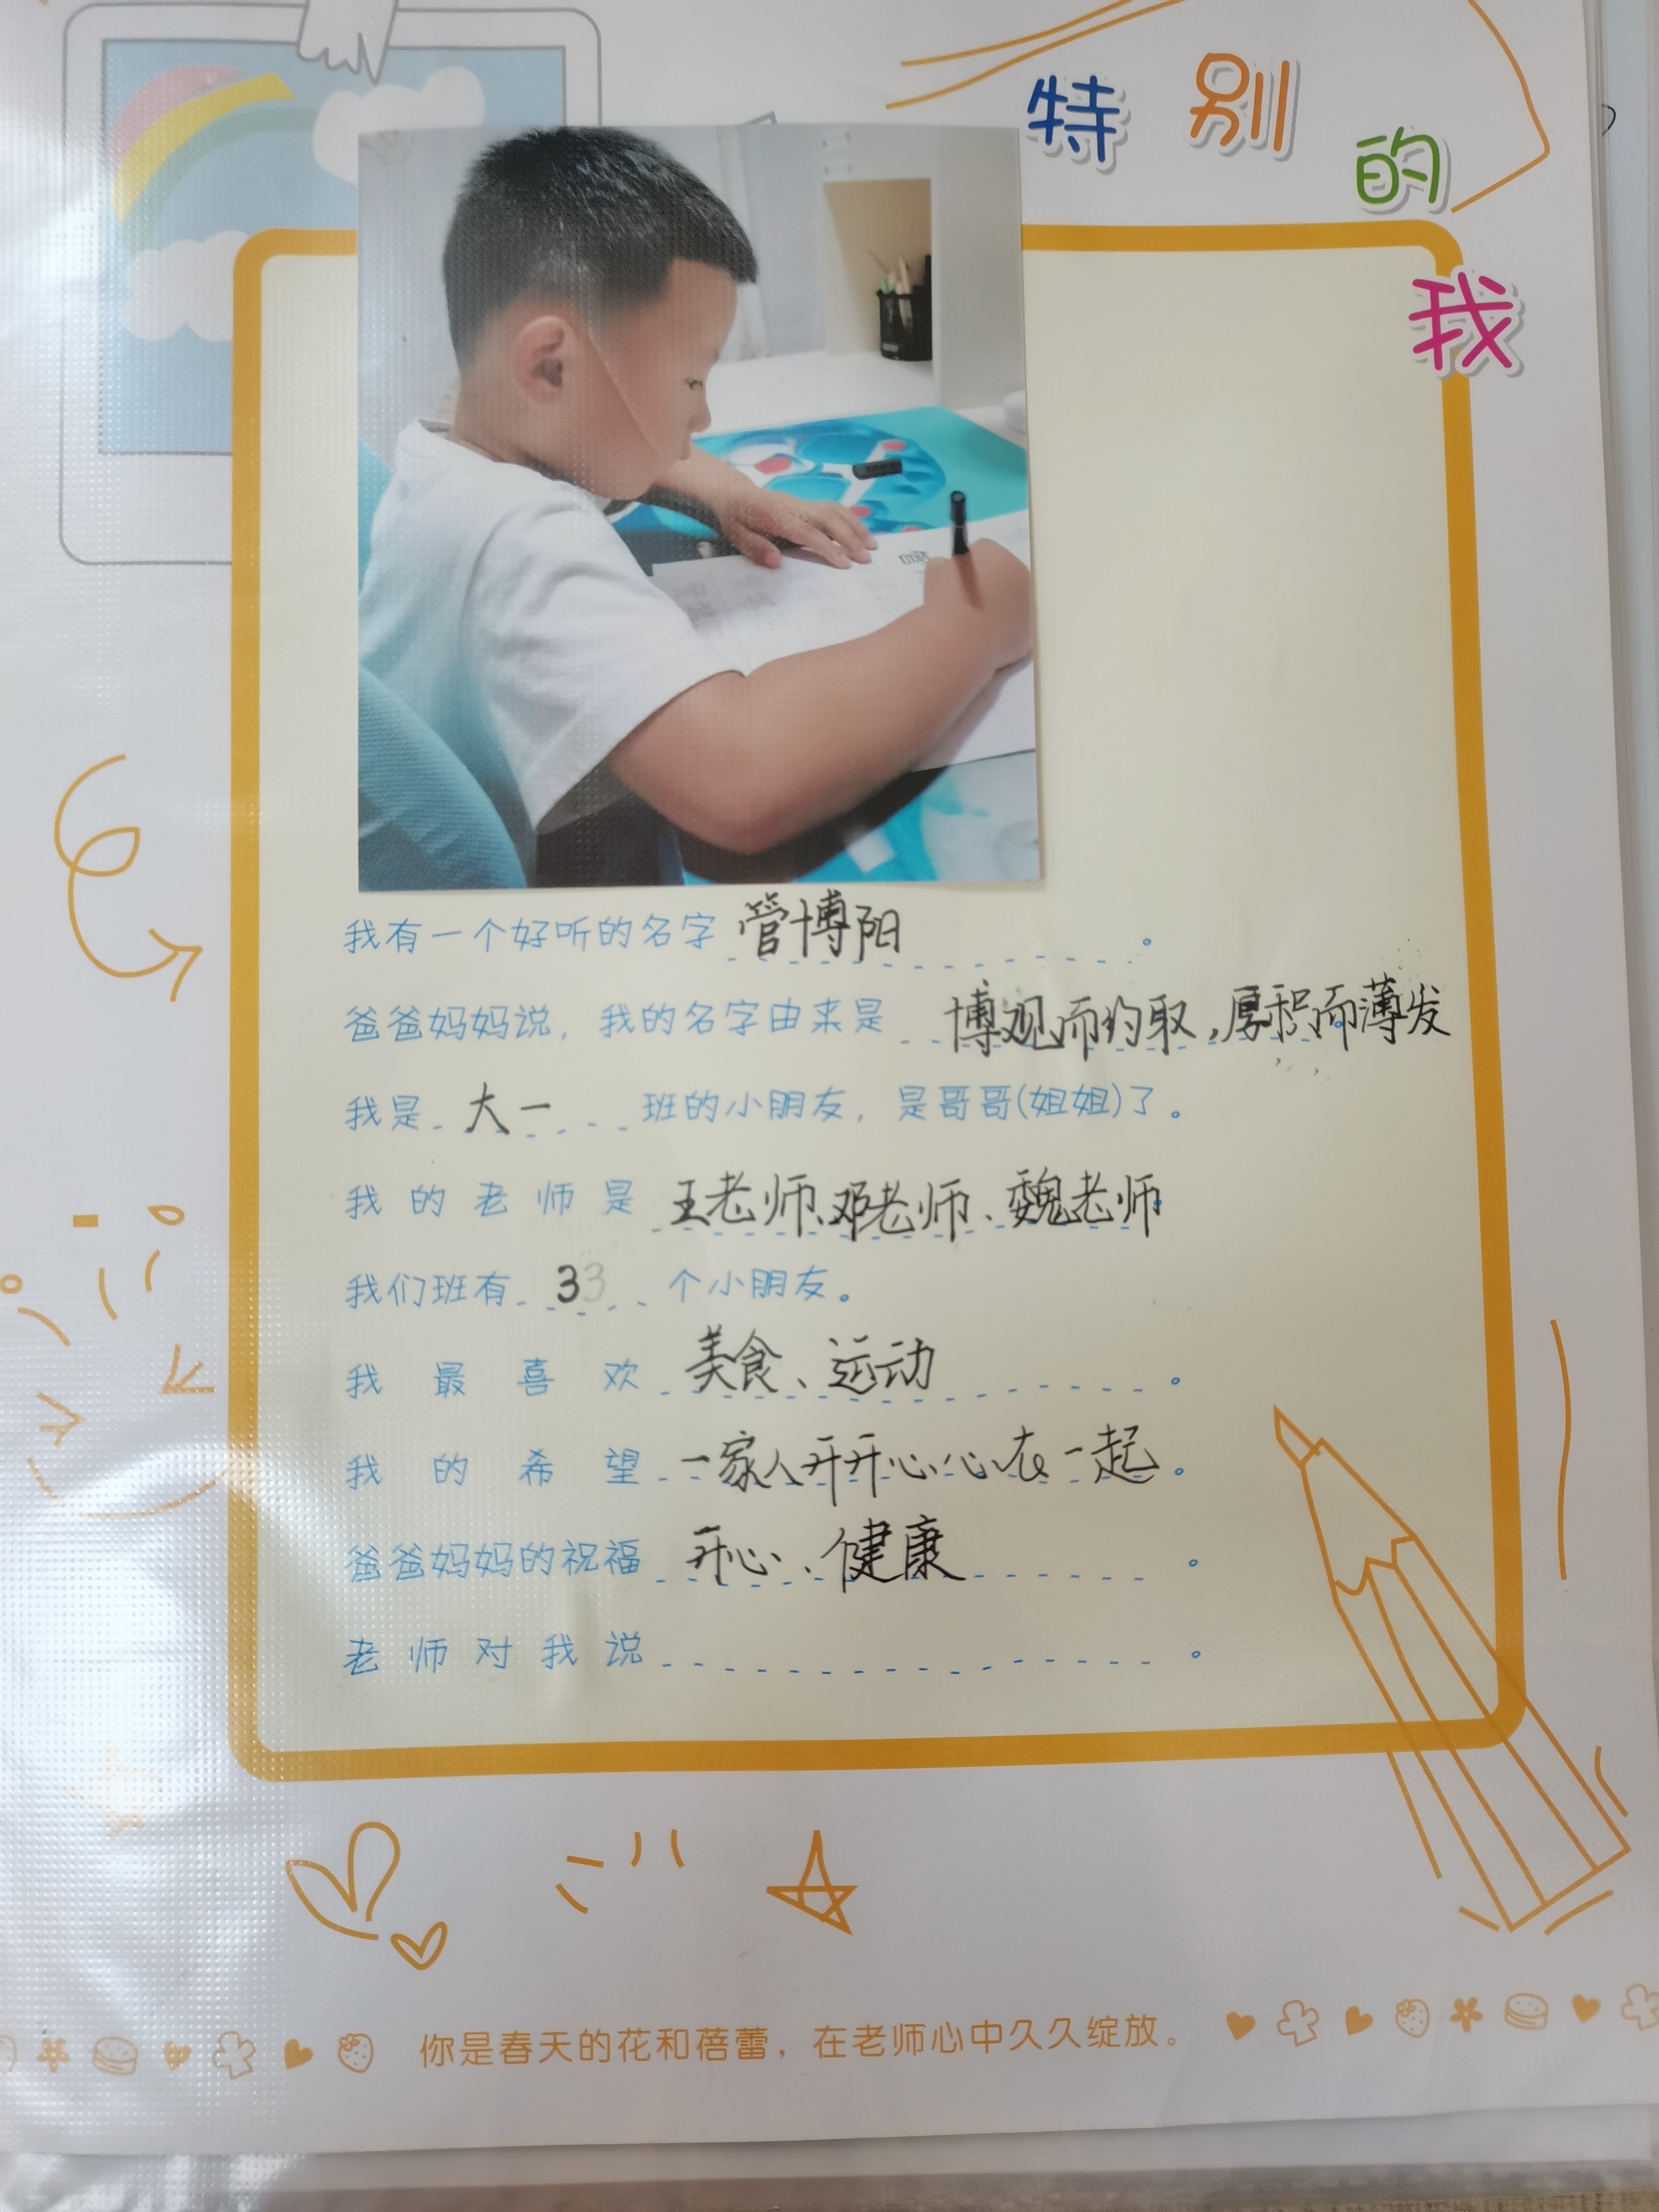 特别的我
我有一个好听的名字 管博阳 。
爸爸妈妈说，我的名字由来是 博观而约取，厚积而薄发
我是 大一 班的小朋友，是哥哥(姐姐)了。
我的老师是 王老师、邓老师、魏老师
我们班有 33 个小朋友。
我最喜欢 美食、运动 。
我的希望 一家人开开心心在一起 。
爸爸妈妈的祝福 开心、健康 。
老师对我说 。
你是春天的花和蓓蕾，在老师心中久久绽放。